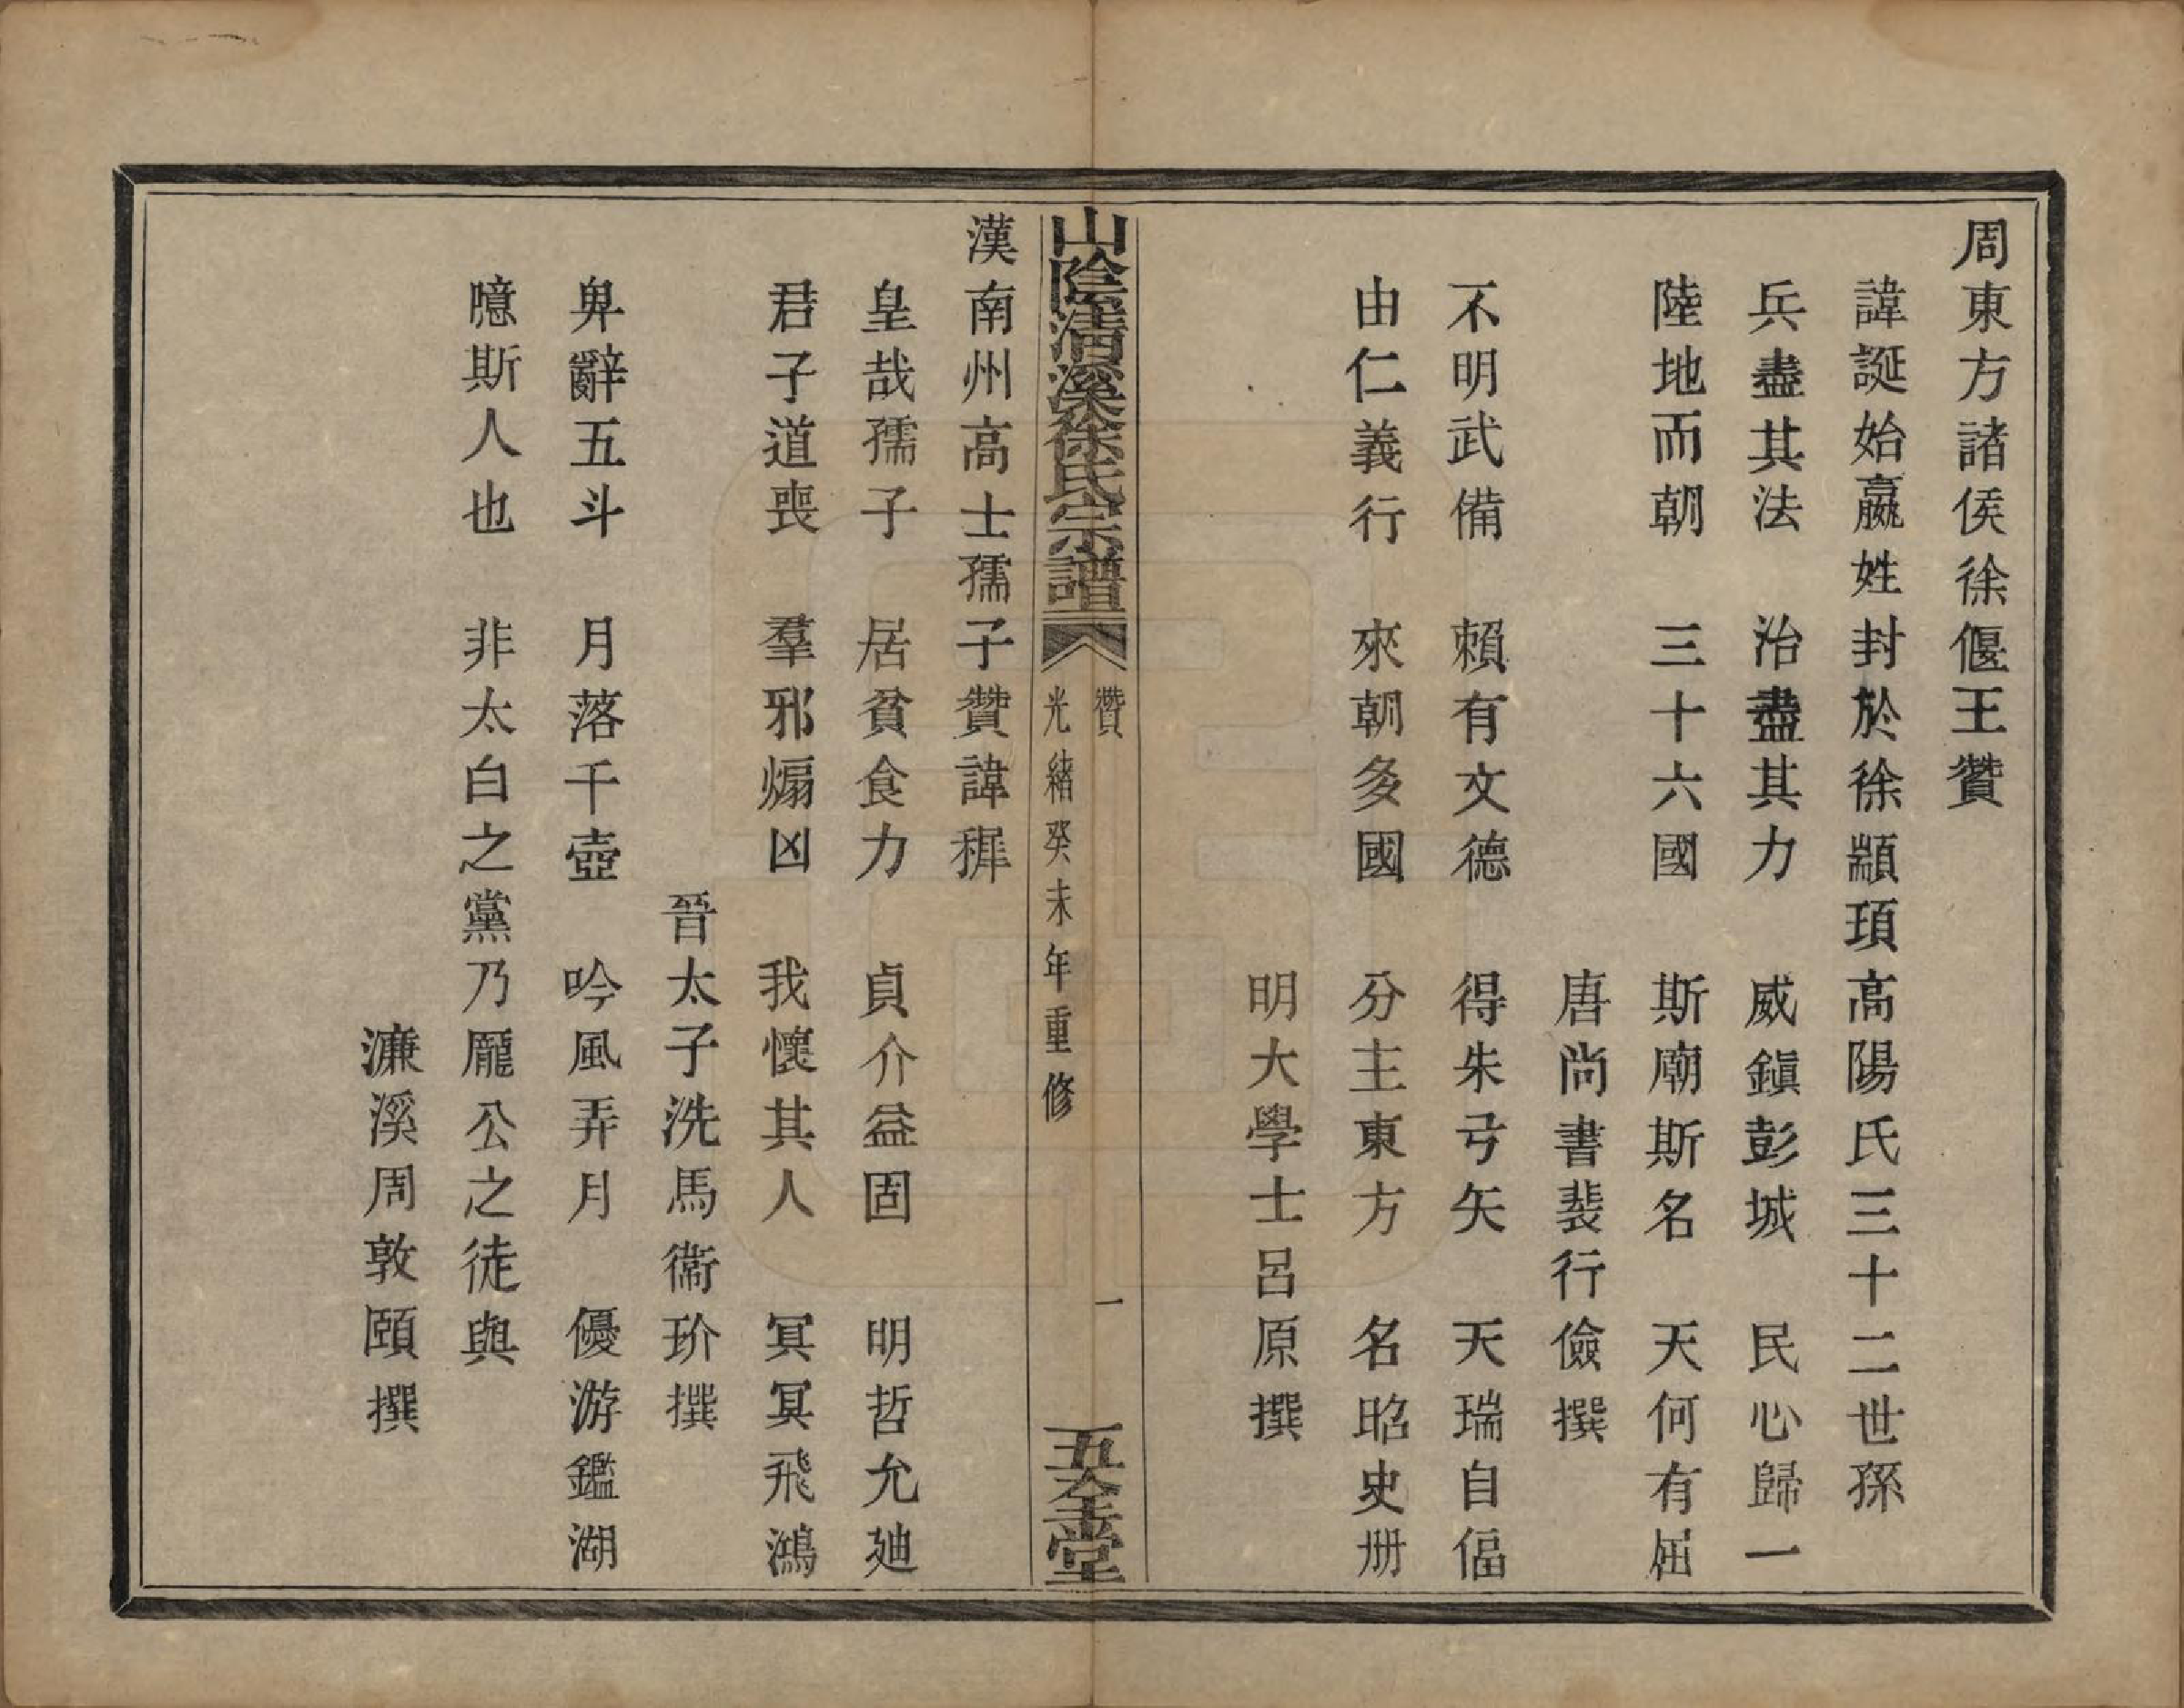 周東方諸侯徐偃王贊
諱誕始嬴姓封於徐顓頊高陽氏三十二世孫
兵盡其法　治盡其力　威鎮彭城　民心歸一
陸地而朝　三十六國　斯廟斯名　天何有屈
唐尚書裴行儉撰
不明武備　賴有文德　得朱弓矢　天瑞自偪
由仁義行　來朝多國　分主東方　名昭史冊
明大學士呂原撰
山陰清溪徐氏宗譜
贊
一
光緒癸未年重修
五全堂
漢南州高士孺子贊諱稺
皇哉孺子　居貧食力　貞介益固　明哲允廸
君子道喪　羣邪煽凶　我懷其人　冥冥飛鴻
晉太子洗馬衞玠撰
畀辭五斗　月落千壺　吟風弄月　優游鑑湖
噫斯人也　非太白之黨乃龐公之徒與
濂溪周敦頤撰